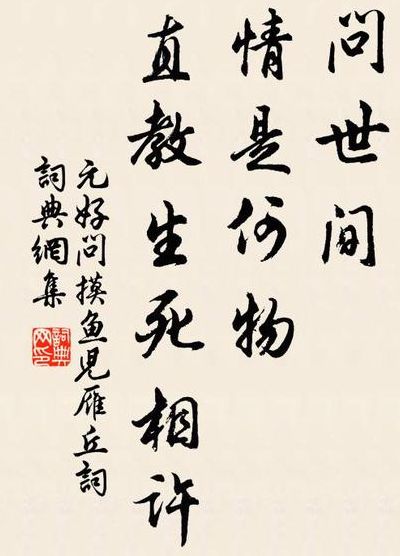 问世间
情是何物
直教生死相许
元好问摸鱼儿雁丘詞
詞典網集
詞典网印